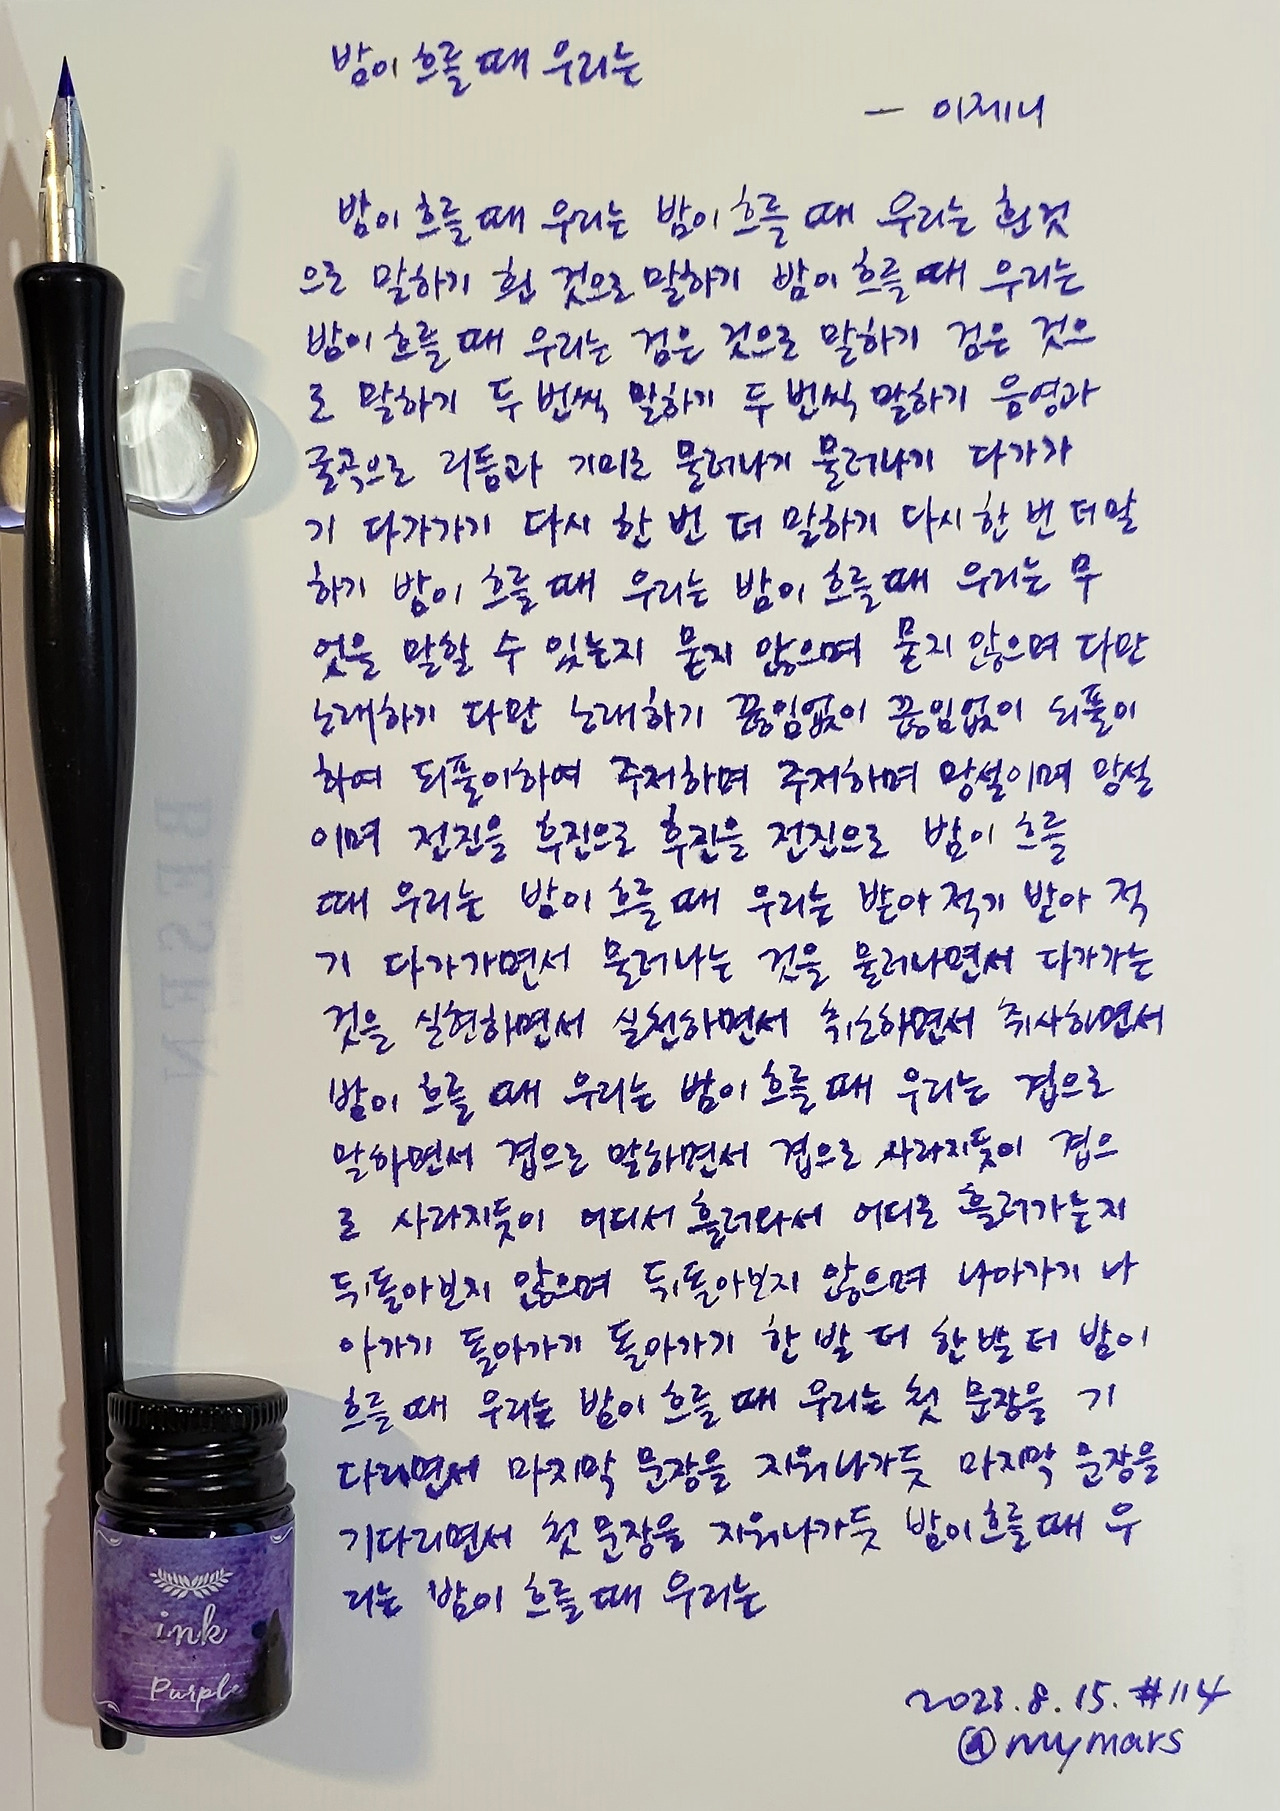 밤이 흐를 때 우리는
— 이제니
밤이 흐를 때 우리는 밤이 흐를 때 우리는 흰 것
으로 말하기 흰 것으로 말하기 밤이 흐를 때 우리는
밤이 흐를 때 우리는 검은 것으로 말하기 검은 것으
로 말하기 두 번씩 말하기 두 번씩 말하기 음영과
굴곡으로 리듬과 기미로 물러나기 물러나기 다가가
기 다가가기 다시 한 번 더 말하기 다시 한 번 더 말
하기 밤이 흐를 때 우리는 밤이 흐를 때 우리는 무
엇을 말할 수 있는지 묻지 않으며 묻지 않으며 다만
노래하기 다만 노래하기 끊임없이 끊임없이 되풀이
하여 되풀이하여 주저하며 주저하며 망설이며 망설
이며 전진을 후진으로 후진을 전진으로 밤이 흐를
때 우리는 밤이 흐를 때 우리는 받아 적기 받아 적
기 다가가면서 물러나는 것을 물러나면서 다가가는
것을 실현하면서 실천하면서 취소하면서 취사하면서
밤이 흐를 때 우리는 밤이 흐를 때 우리는 겹으로
말하면서 겹으로 말하면서 겹으로 사라지듯이 겹으
로 사라지듯이 어디서 흘러와서 어디로 흘러가는지
뒤돌아보지 않으며 뒤돌아보지 않으며 나아가기 나
아가기 돌아가기 돌아가기 한 발 더 한 발 더 밤이
흐를 때 우리는 밤이 흐를 때 우리는 첫 문장을 기
다리면서 마지막 문장을 지워나가듯 마지막 문장을
기다리면서 첫 문장을 지워나가듯 밤이 흐를 때 우
리는 밤이 흐를 때 우리는
2023.8.15. #114
@mymars
BESEN
ink
Purple